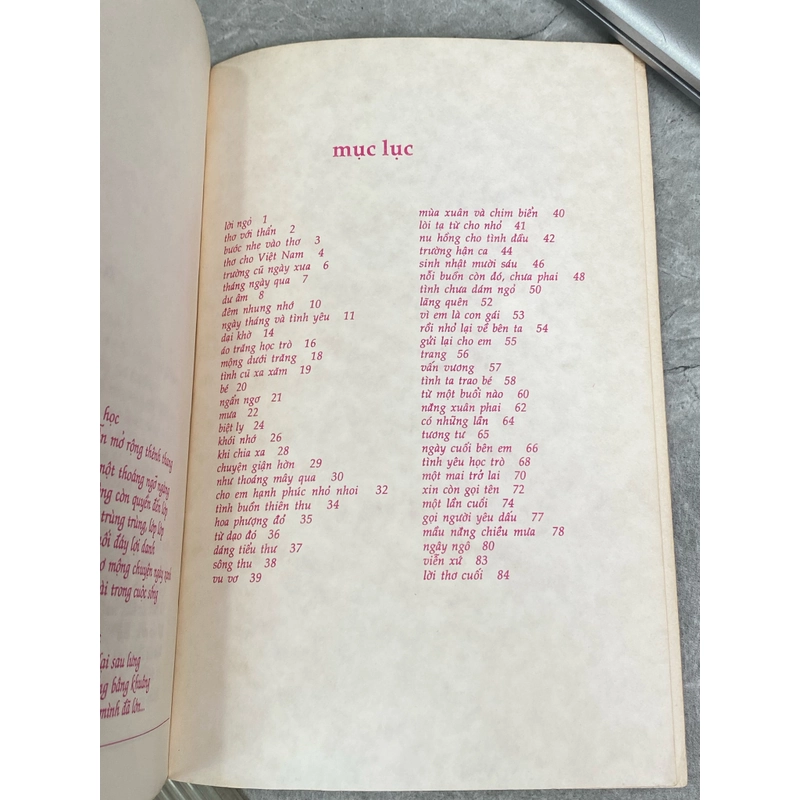 học
mở rộng thênh thang
một thoáng ngỡ ngàng
còn quyến
trùng trùng, lớp lớp
đây lợi danh
mộng chuyện ngày
trong cuộc sống
lại sau lưng
bâng khuâng
mình đã lớn...
mục lục
lời ngỏ 1
thơ với thẩn 2
bước nhẹ vào thơ 3
thơ cho Việt Nam 4
trường cũ ngày xưa 6
tháng ngày qua 7
dư âm 8
đêm nhung nhớ 10
ngày tháng và tình yêu 11
dại khờ 14
áo trắng học trò 16
mộng dưới trăng 18
tình cũ xa xăm 19
bé 20
ngẩn ngơ 21
mưa 22
biệt ly 24
khói nhớ 26
khi chia xa 28
chuyện giận hờn 29
như thoáng mây qua 30
cho em hạnh phúc nhỏ nhoi 32
tình buồn thiên thu 34
hoa phượng đỏ 35
từ dạo đó 36
dáng tiểu thư 37
sông thu 38
vu vơ 39
mùa xuân và chim biển 40
lời tạ từ cho nhỏ 41
nụ hồng cho tình đầu 42
trường hận ca 44
sinh nhật mười sáu 46
nỗi buồn còn đó, chưa phai 48
tình chưa dám ngỏ 50
lãng quên 52
vì em là con gái 53
rồi nhỏ lại về bên ta 54
gửi lại cho em 55
trang 56
vấn vương 57
tình ta trao bé 58
từ một buổi nào 60
nắng xuân phai 62
có những lần 64
tương tư 65
ngày cuối bên em 66
tình yêu học trò 68
một mai trở lại 70
xin còn gọi tên 72
một lần cuối 74
gọi người yêu dấu 77
mầu nắng chiều mưa 78
ngây ngô 80
viễn xứ 83
lời thơ cuối 84